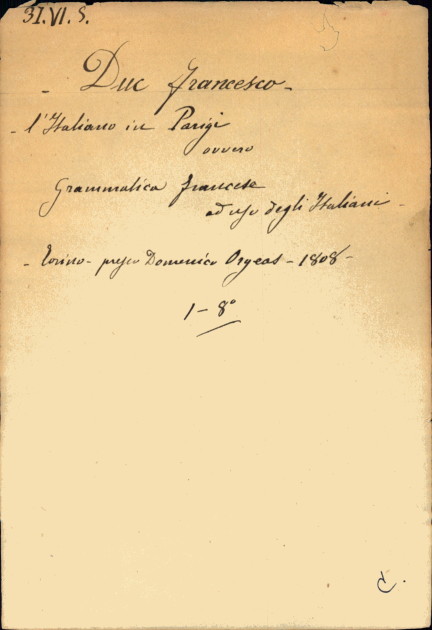 31.VI.S.
- Duc Francesco -
- l'Italiano in Parigi
ovvero
Grammatica francese
ad uso degli Italiani -
- Torino - presso Domenico Orgeas - 1808 -
1 - 8°
C.